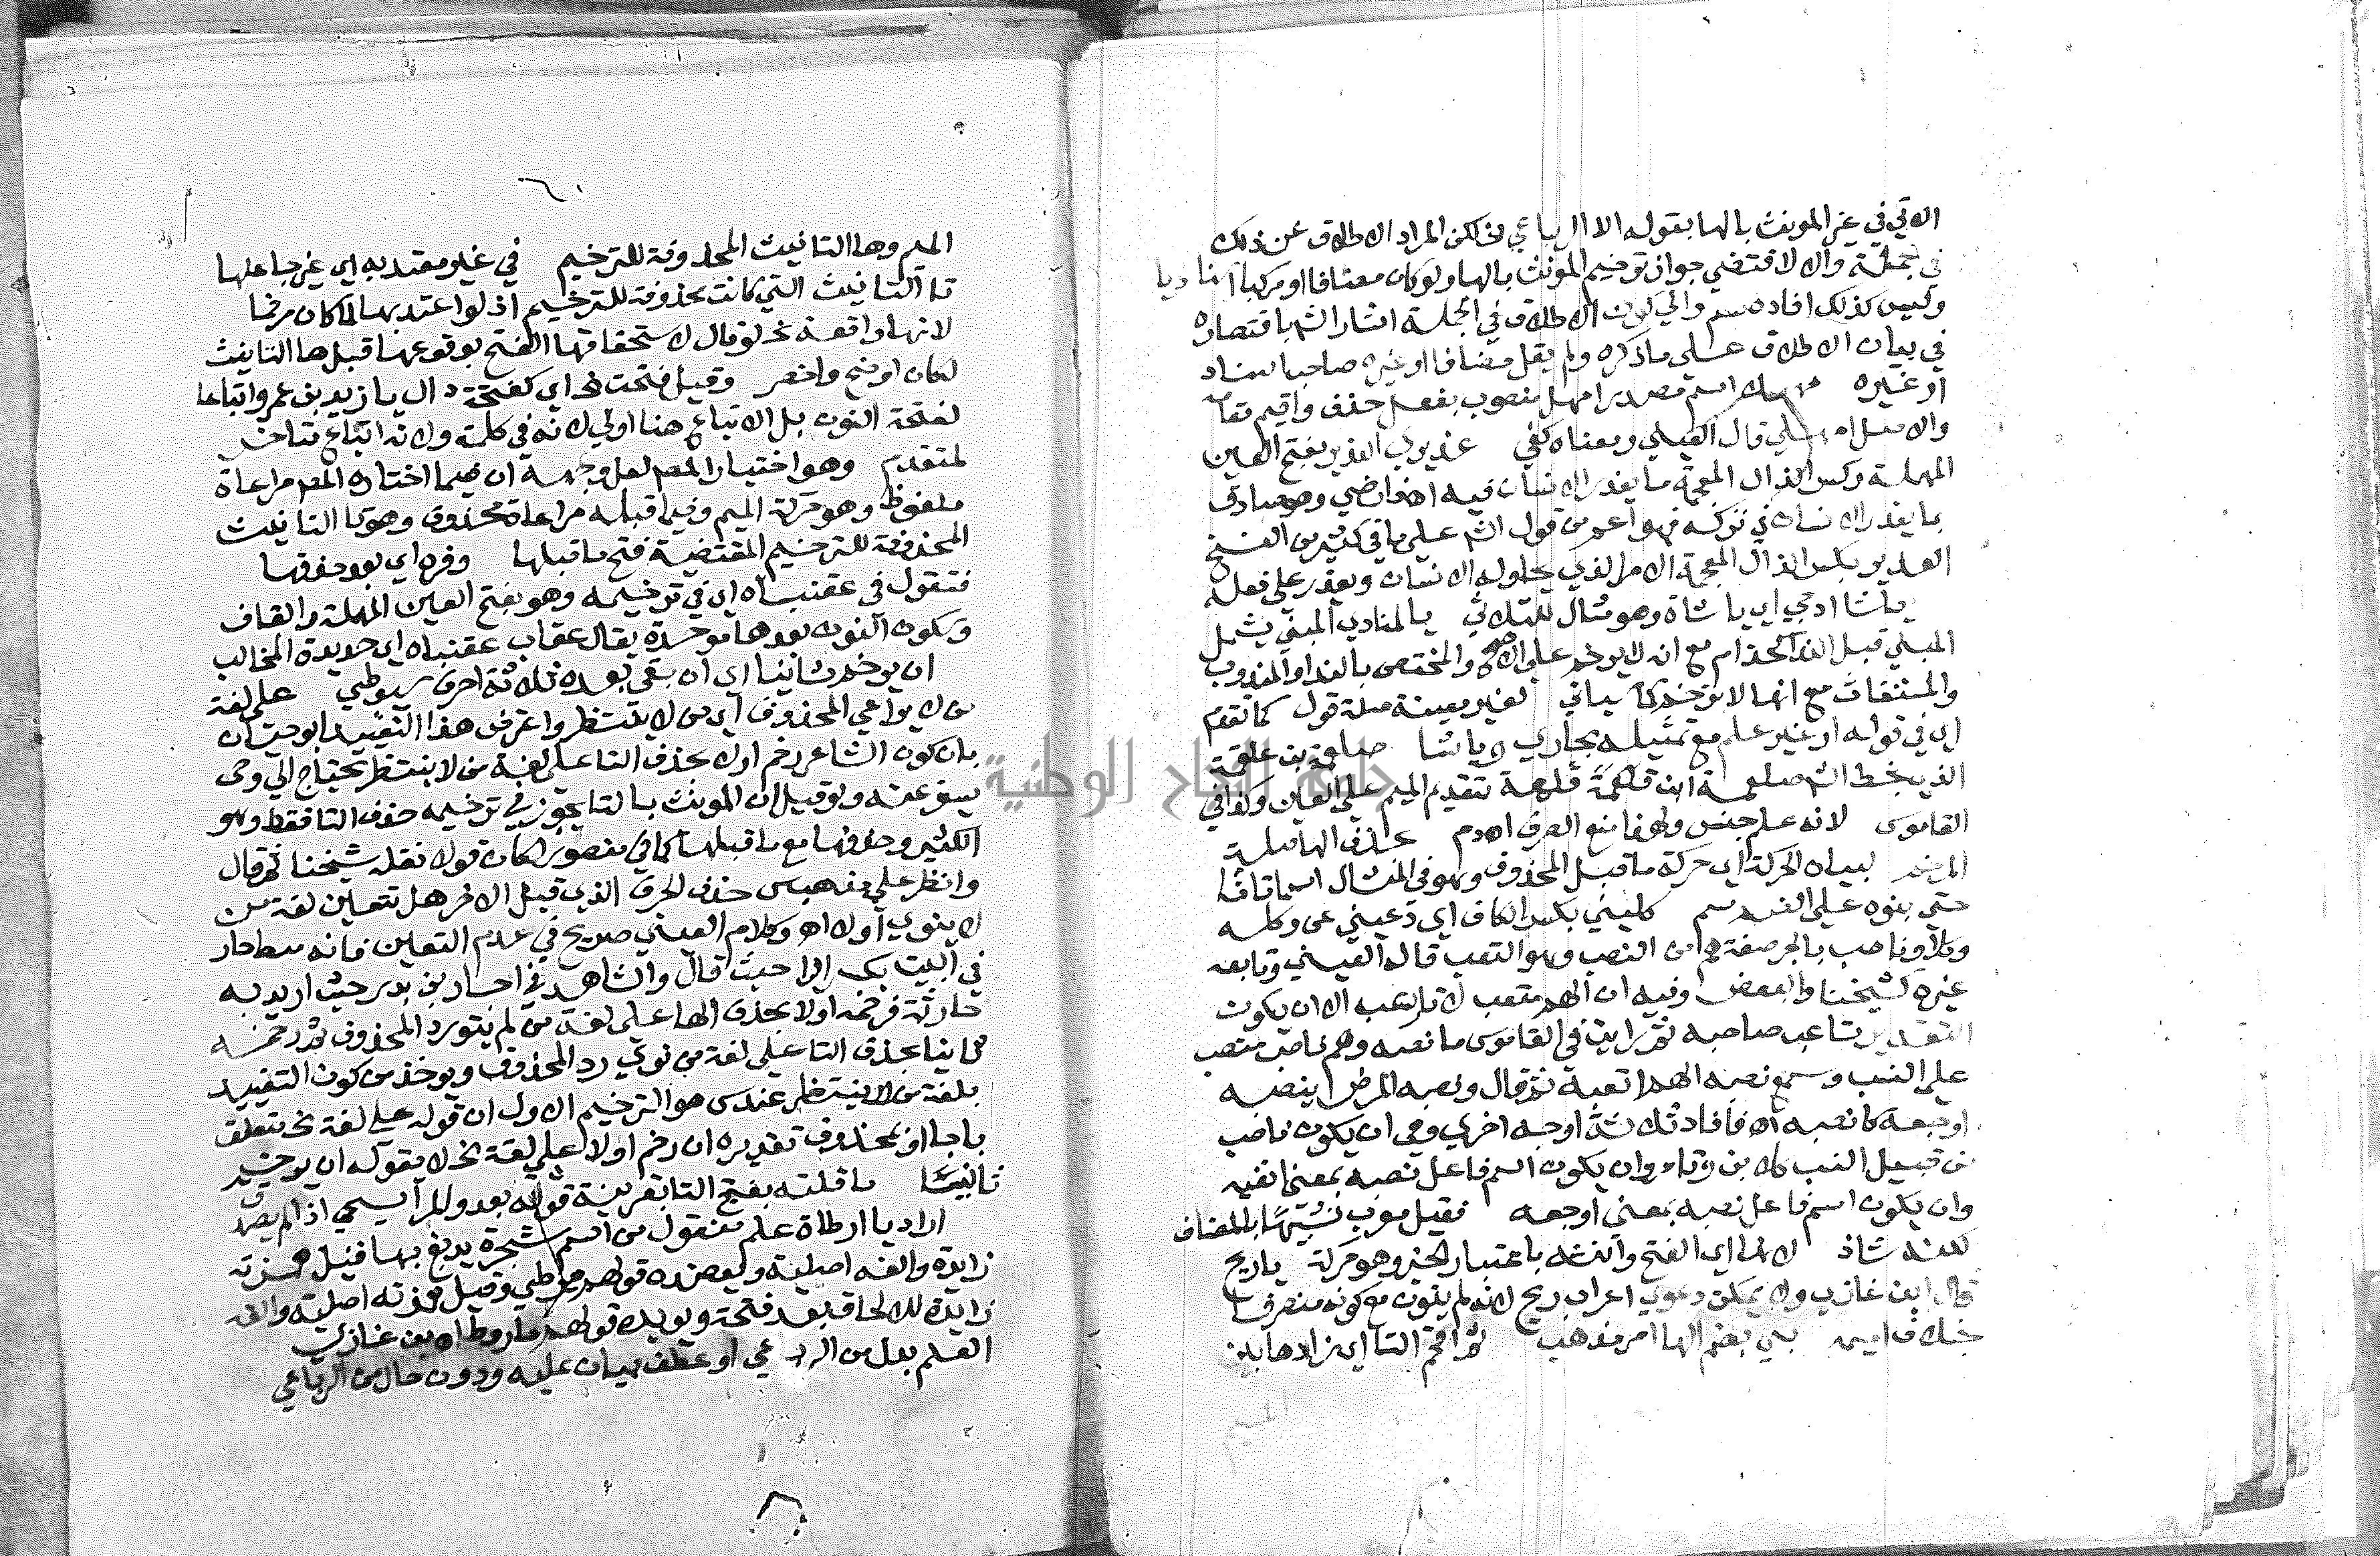 الاتي في غير المونث بالها بقوله الا الرباعي فخ لكن المراد الاطلاق عن ذلك
في الجملة والا لاقتضي جواز ترخيم المونث بالها ولو كان مضافا او مركبا
وليس كذلك افاده سم والي كون الاطلاق في الجملة اشار الشم باقتصاره
في بيان الاطلاق على ما ذكره ولم يقل مضافا او غيره صاحب اسناد
او غيره اسم مصدر امهل منصوب بفعل حذف واقيم مقامه
والاصل امهلي قال العيني ومعناه كفي عذيري العذير بفتح العين
المهملة وكسر الذال المعجمة ما يعذر الانسان فيه وهو صادق
بما يعذر الانسان في تركه فهو اعم من قول الشم على ما في كثير من النسخ
العذير بكسر الذال المعجمة الامر الذي يحاوله الانسان ويعذر على فعله
يا شا ادجني اي يا شاة وهو مثال للثلاثي بالمنادي المبني يشمل
المبني قبل الندا كحذام مع انه لا يرخم على الاصح والمختص بالندا والمندوب
والمستغاث مع انها لا ترخم كما ياتي لغير معينة صلة قول كما تقدم
اي في قوله او غير علم مع تمثيله بجاري ويا شا صلعة بن قلعة
الذي بخط الشم صلمعة ابن قلمعة قلمعة بتقديم الميم على العين وكذا في
القاموس لانه علم جنس ولهذا منع الصرف اهدم بحذف الها صلة
المرخم لبيان الحركة اي حركة ما قبل المحذوف وهو في المثال
حتي بنوه على الفتح سم كليني بكسر الكاف اي دعيني
وناصب بالجر صفة هم من النصب وهو التعب قاله العيني وتابعه
غيره كشيخنا والبعض وفيه ان الهم متعب لا تاعب الا ان يكون
التقدير تاعب صاحبه ثم رايت في القاموس ما نصه وهم ناصب منصب
على النسب وسمع نصبه الهم اتعبه ثم قال ونصبه المرض ينصبه
اوجعه كانصبه اه فافاد ثلاثة اوجه اخري وهي ان يكون ناصب
من قبيل النسب كلابن وتامر وان يكون اسم فاعل نصبه بمعني اتعبه
وان يكون اسم فاعل نصبه بمعني اوجعه فقيل معرب تشبيها بالمضاف
لكنه شاذ لانها اي الفتح وانثه باعتبار الخبر وهو حركة يا ريح
قال ابن غازي ولا يمكن دعوي اعراب ريح لانه لم ينون مع كونه منصرفا
بخلاف اميم بني بضم الها امر مذهب ثم اقحم التا اي زادها بين
الميم
الميم وها التانيث المحذوفة للترخيم في غير معتد به اي غير جاعلها
تا التانيث التي كانت محذوفة للترخيم اذ لو اعتد بها لما كان مرخما
لانها واقعة لو قال لاستحقاقها الفتح بوقوعها قبل ها التانيث
لكان اوضح واخصر وقيل فتحت اي كفتحة دال يا زيد بن عمرو اتباعا
لفتحة النون بل الاتباع هنا اولي لانه في كلمة ولانه اتباع متاخر
لمتقدم وهو اختيار المصم لعل وجهه ان فيما اختاره المصم مراعاة
ملفوظ وهو حركة الميم وفيما قبله مراعاة محذوف وهو تا التانيث
المحذوفة للترخيم المقتضية فتح ما قبلها وفره اي بعد حذفها
فتقول في عقنباه اي في ترخيمه وهو بفتح العين المهملة والقاف
وسكون النون بعدها موحدة يقال عقاب عقنباه اي حديدة المخالب
ان يرخم ثانيا اي ان بقي بعده ثلاثة احرف سيوطي على لغة
من لا يراعي المحذوف اي من لا ينتظر واعترض هذا التقييد ابو حيان
بان كون الشاعر رخم اولا بحذف التا على لغة من لا ينتظر يحتاج الي وحي
يسفر عنه ولو قيل ان المونث بالتا يجوز في ترخيمه حذف التا فقط وهو
الكثير وحذفها مع ما قبلها كما في منصور لكان قولا نقله شيخنا ثم قال
وانظر على مذهب س حذف الحرف الذي قبل الاخر هل تتعين لغة من
لا ينوي اولا اه وكلام العيني صريح في عدم التعين فانه
في البيت بكسر الرا حيث قال والشاهد في احار بن بدر حيث اريد به
حارثة فرخمه اولا بحذف الها على لغة من لم ينو رد المحذوف ثم رخمه
ثانيا بحذف التا على لغة من نوي رد المحذوف ويوخذ من كون التقييد
بلغة من لا ينتظر عند س هو الترخيم الاول ان قوله على لغة تتعلق
باجاز او بمحذوف تقديره ان رخم اولا على لغة لا بقوله ان يرخم
ثانيا ما قلته بفتح التا بقرينة قوله بعد والمرا يستحي اذا لم يصدق
اراد يا ارطاة علم منقول من اسم شجرة يدبغ بها قيل همزته
زايدة والفه اصلية ويعضده قولهم مرطي وقيل همزته اصلية والفه
زايدة للالحاق بعد فتحة ويويده قولهم ماروط اه ابن غازي
العلم بدل من الرباعي او عطف بيان عليه ودون حال من الرباعي
جامعة النجاح الوطنية